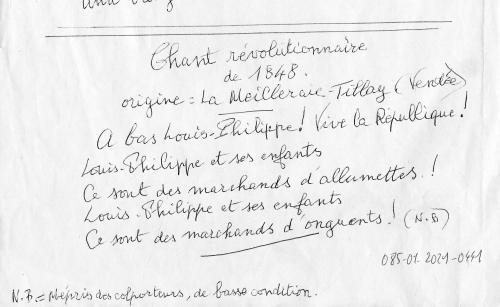 Chant révolutionnaire
de 1848.
origine = La Meilleraie-Tillay (Vendée)
A bas Louis-Philippe ! Vive la République !
Louis-Philippe et ses enfants
Ce sont des marchands d'allumettes. !
Louis-Philippe et ses enfants
Ce sont des marchands d'onguents ! (N.B)
085-01.2021-0441
N.B = Mépris des colporteurs, de basse condition.